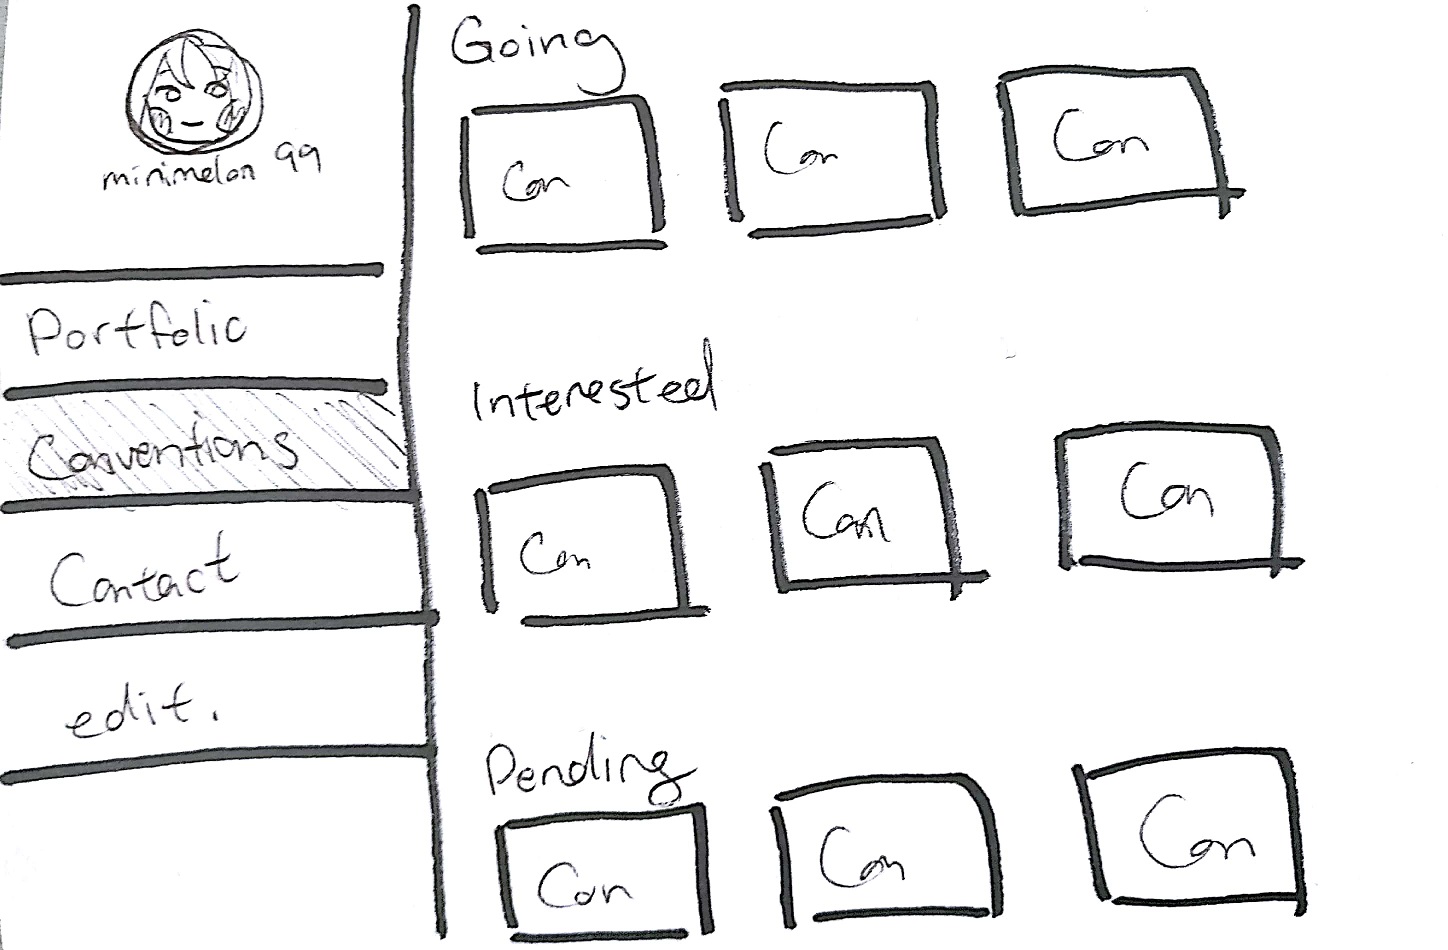 minimelon 99
Portfolio
Conventions
Contact
edit.
Going
Con
Con
Con
Interested
Con
Con
Con
Pending
Con
Con
Con